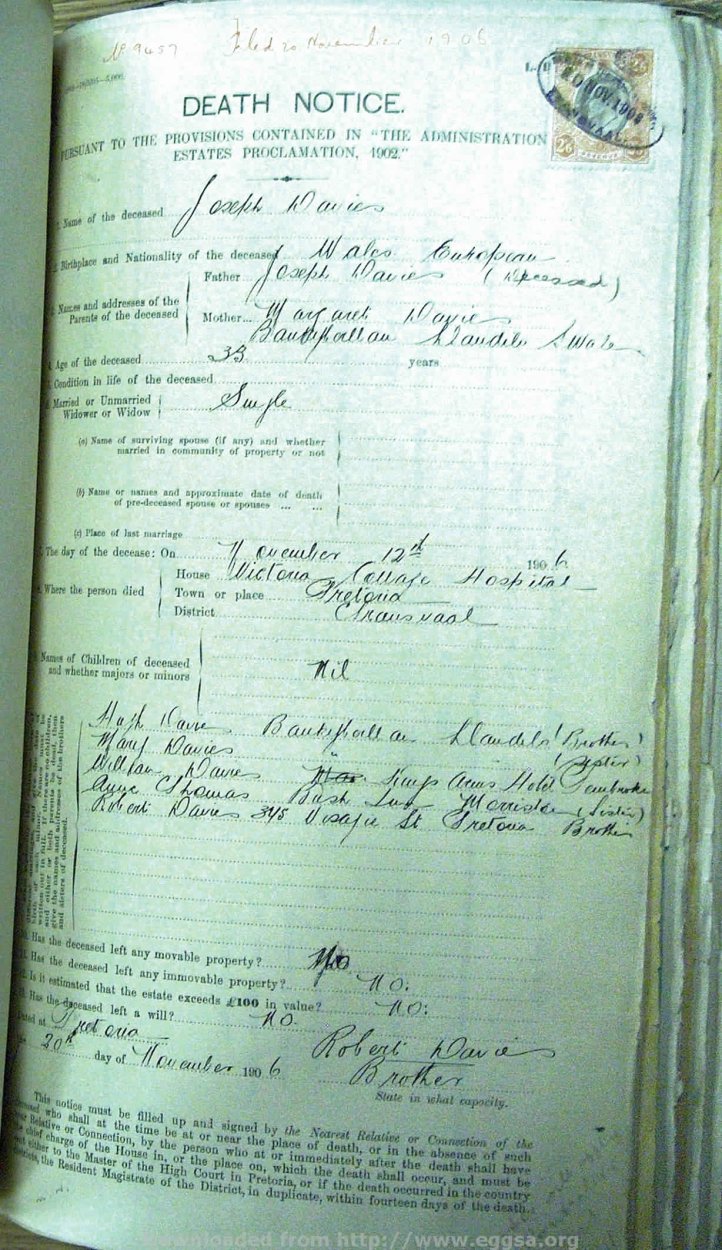 No 9457 Filed 20 November 1906
DEATH NOTICE.
PURSUANT TO THE PROVISIONS CONTAINED IN "THE ADMINISTRATION
ESTATES PROCLAMATION, 1902."
1. Name of the deceased Joseph Davies
2. Birthplace and Nationality of the deceased Wales European
Father Joseph Davies (Deceased)
3. Names and addresses of the
Parents of the deceased
Mother Margaret Davies
Llandilo S Wales
4. Age of the deceased 33 years
5. Condition in life of the deceased
6. Married or Unmarried
Widower or Widow
Single
(a) Name of surviving spouse (if any) and whether
married in community of property or not
(b) Name or names and approximate date of death
of pre-deceased spouse or spouses ... ...
(c) Place of last marriage
7. The day of the decease: On November 12th 1906
House Victoria Cottage Hospital
8. Where the person died Town or place Pretoria
District Transvaal
9. Names of Children of deceased
and whether majors or minors
Nil
written out in full. If there are no children,
and either or both parents be dead, then
give the names and addresses of the brothers
and sisters of deceased.
Hugh Davies Llandilo (Brother)
Mary Davies (Sister)
William Davies Kings Arms Hotel Pembroke
Anne Thomas Bush Inn Morriston (Sister)
Robert Davies 345 Visagie St Pretoria Brother
10. Has the deceased left any movable property? No
11. Has the deceased left any immovable property? No:
12. Is it estimated that the estate exceeds £100 in value? No:
13. Has the deceased left a will? No.
Dated at Pretoria
the 20th day of November 1906
Robert Davies
Brother
State in what capacity.
This notice must be filled up and signed by the Nearest Relative or Connection of the
deceased who shall at the time be at or near the place of death, or in the absence of such
near Relative or Connection, by the person who at or immediately after the death shall have
the chief charge of the House in, or the place on, which the death shall occur, and must be
sent either to the Master of the High Court in Pretoria, or if the death occurred in the country
districts, the Resident Magistrate of the District, in duplicate, within fourteen days of the death.
Downloaded from http://www.eggsa.org